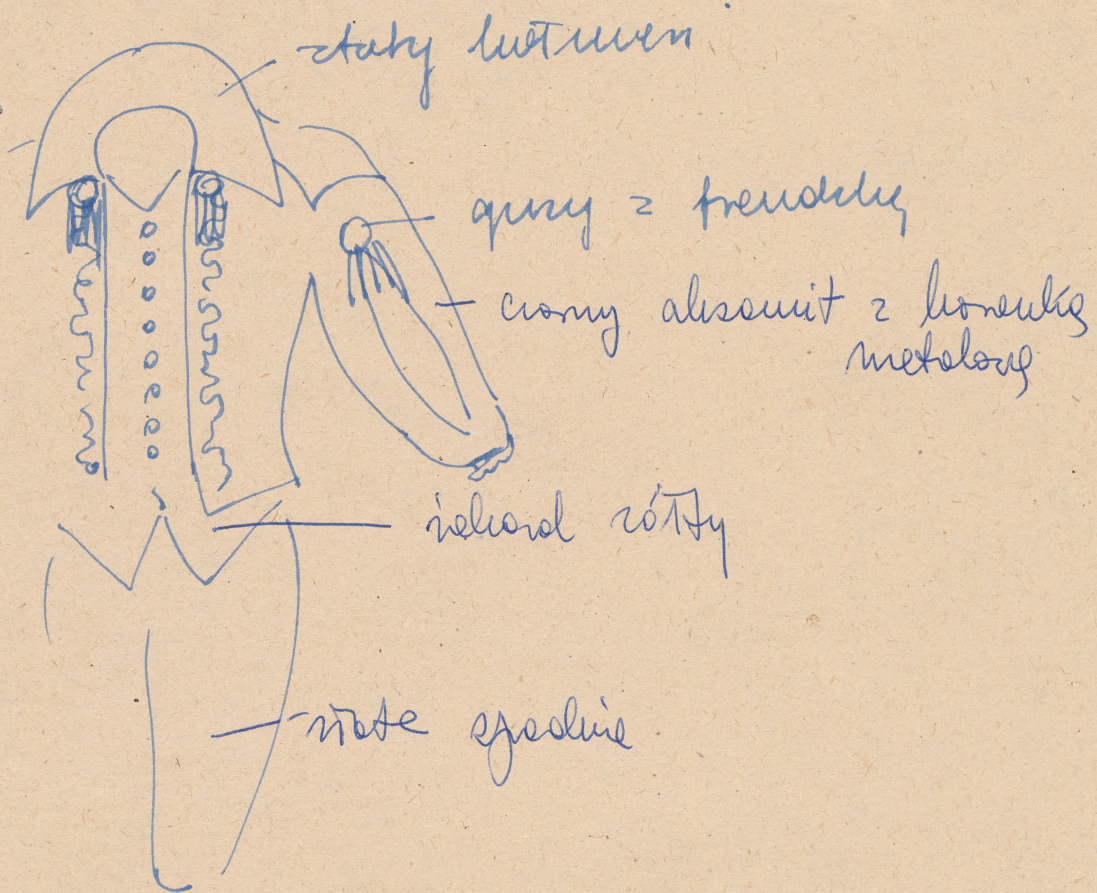 złoty kołnierz
guzy z frendzlą
czarny aksamit z koronką
metalową
żakard żółty
złote spodnie